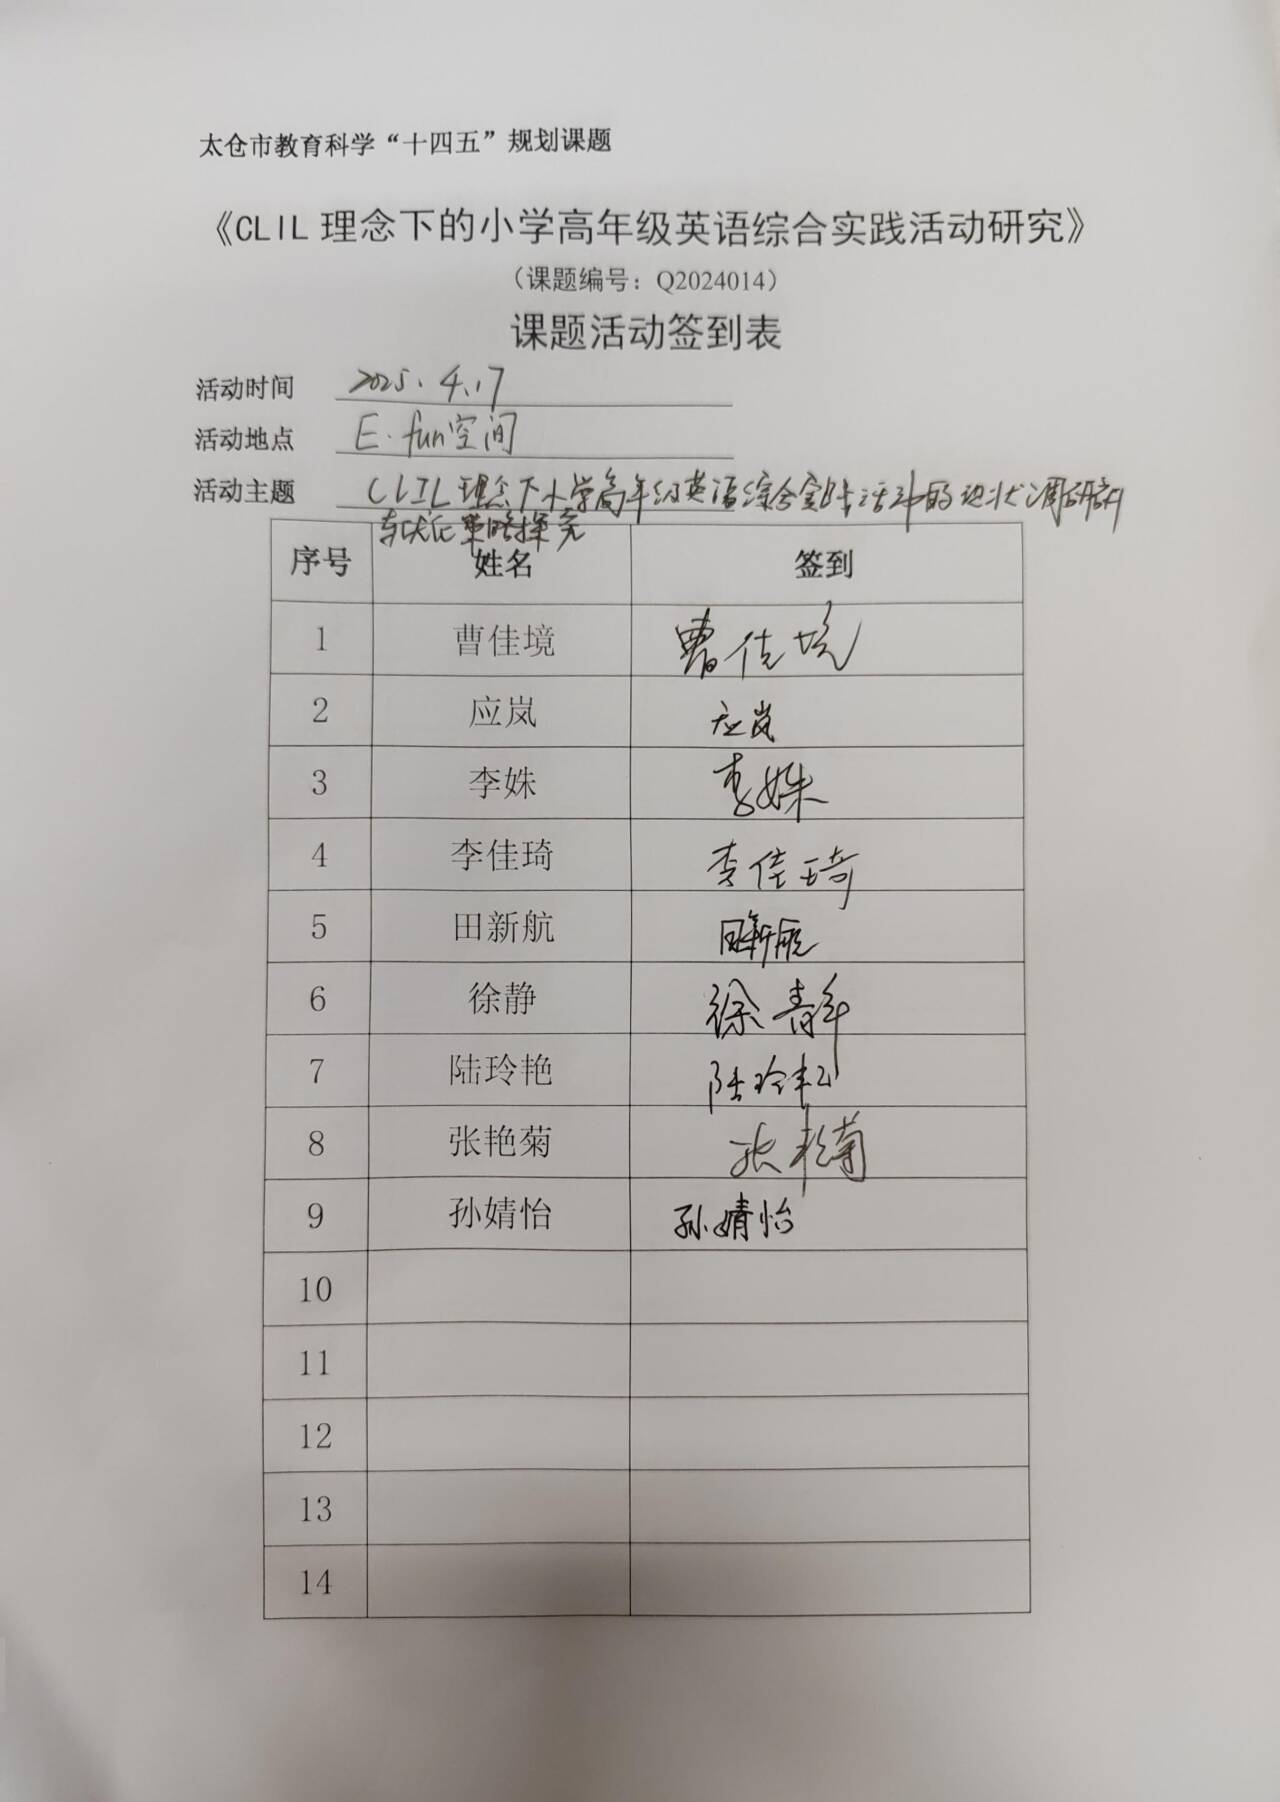 太仓市教育科学“十四五”规划课题
《CLIL 理念下的小学高年级英语综合实践活动研究》
（课题编号：Q2024014）
课题活动签到表
活动时间 2025.4.17
活动地点 E·fun空间
活动主题 CLIL理念下小学高年级英语综合实践活动的现状调研
优化策略探究
序号 姓名 签到
1 曹佳境 曹佳境
2 应岚 应岚
3 李姝 李姝
4 李佳琦 李佳琦
5 田新航 田新航
6 徐静 徐静
7 陆玲艳 陆玲艳
8 张艳菊 张艳菊
9 孙婧怡 孙婧怡
10
11
12
13
14